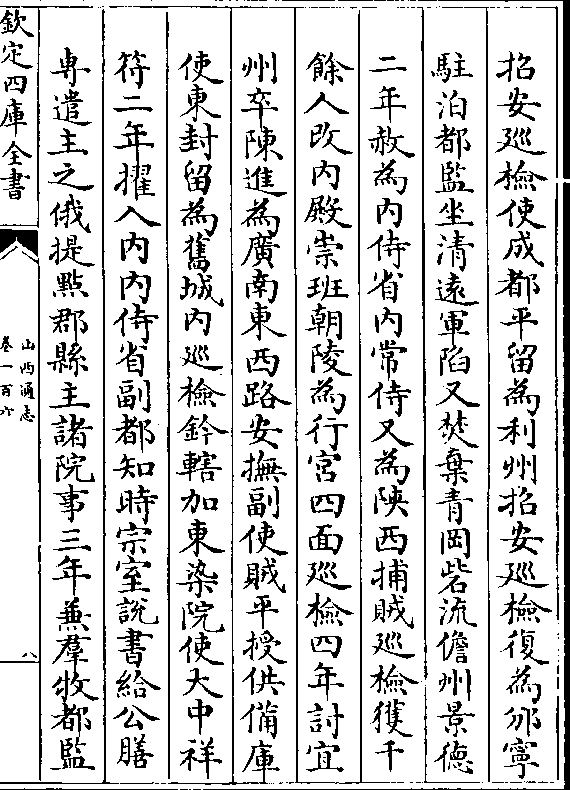 招安巡檢使成都平留為利州招安巡檢復為邠寧
駐泊都監坐清遠軍陷又焚棄青岡砦流儋州景德
二年赦為内侍省内常侍又為陜西捕賊巡檢獲千
餘人改内殿崇班朝陵為行宮四面巡檢四年討宜
州卒陳進為廣南東西路安撫副使賊平授供備庫
使東封留為舊城内巡檢鈐轄加東染院使大中祥
符二年擢入内内侍省副都知時宗室説書給公膳
專遣主之俄提㸃郡縣主諸院事三年兼羣牧都監
欽定四庫全書
山西通志
卷一百六
八